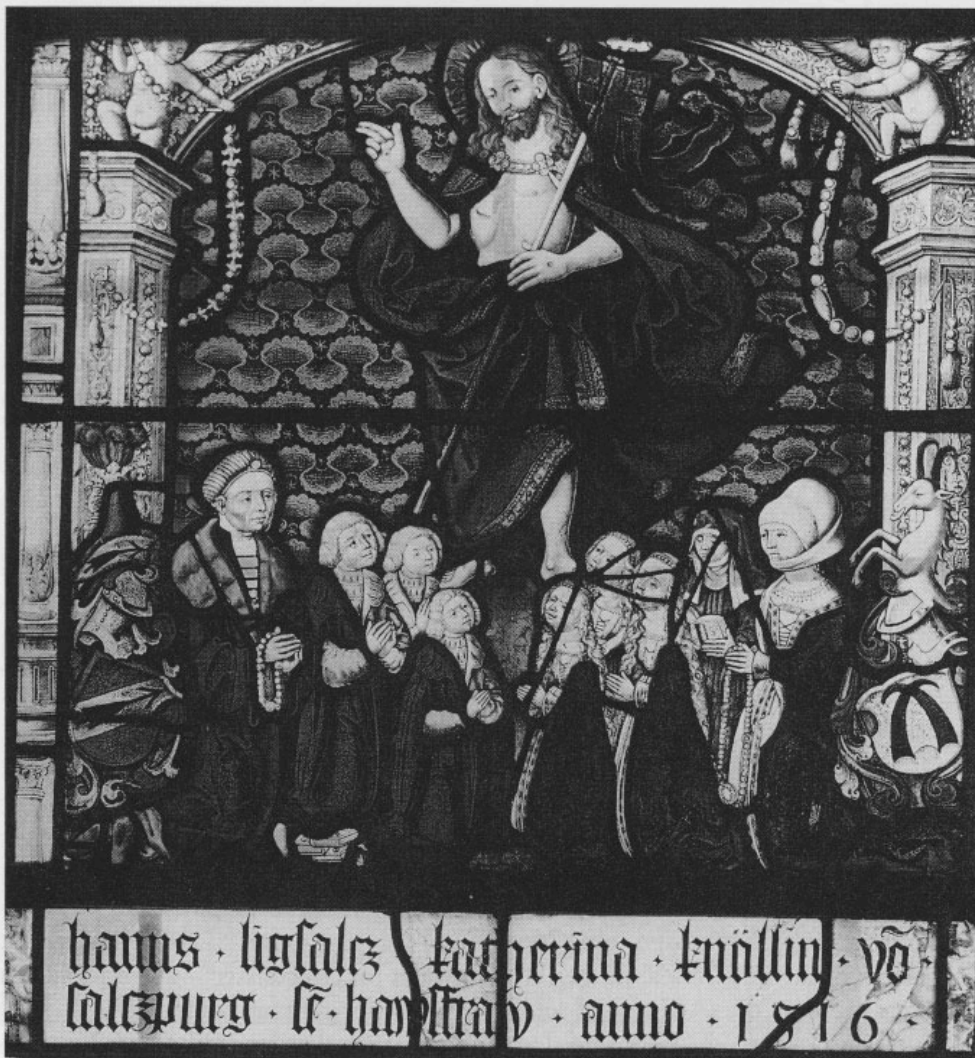 hanns · ligsalcz katherina · knöllin · vō ·
salczpurg · sē · hawsfraw · anno · 1516 ·